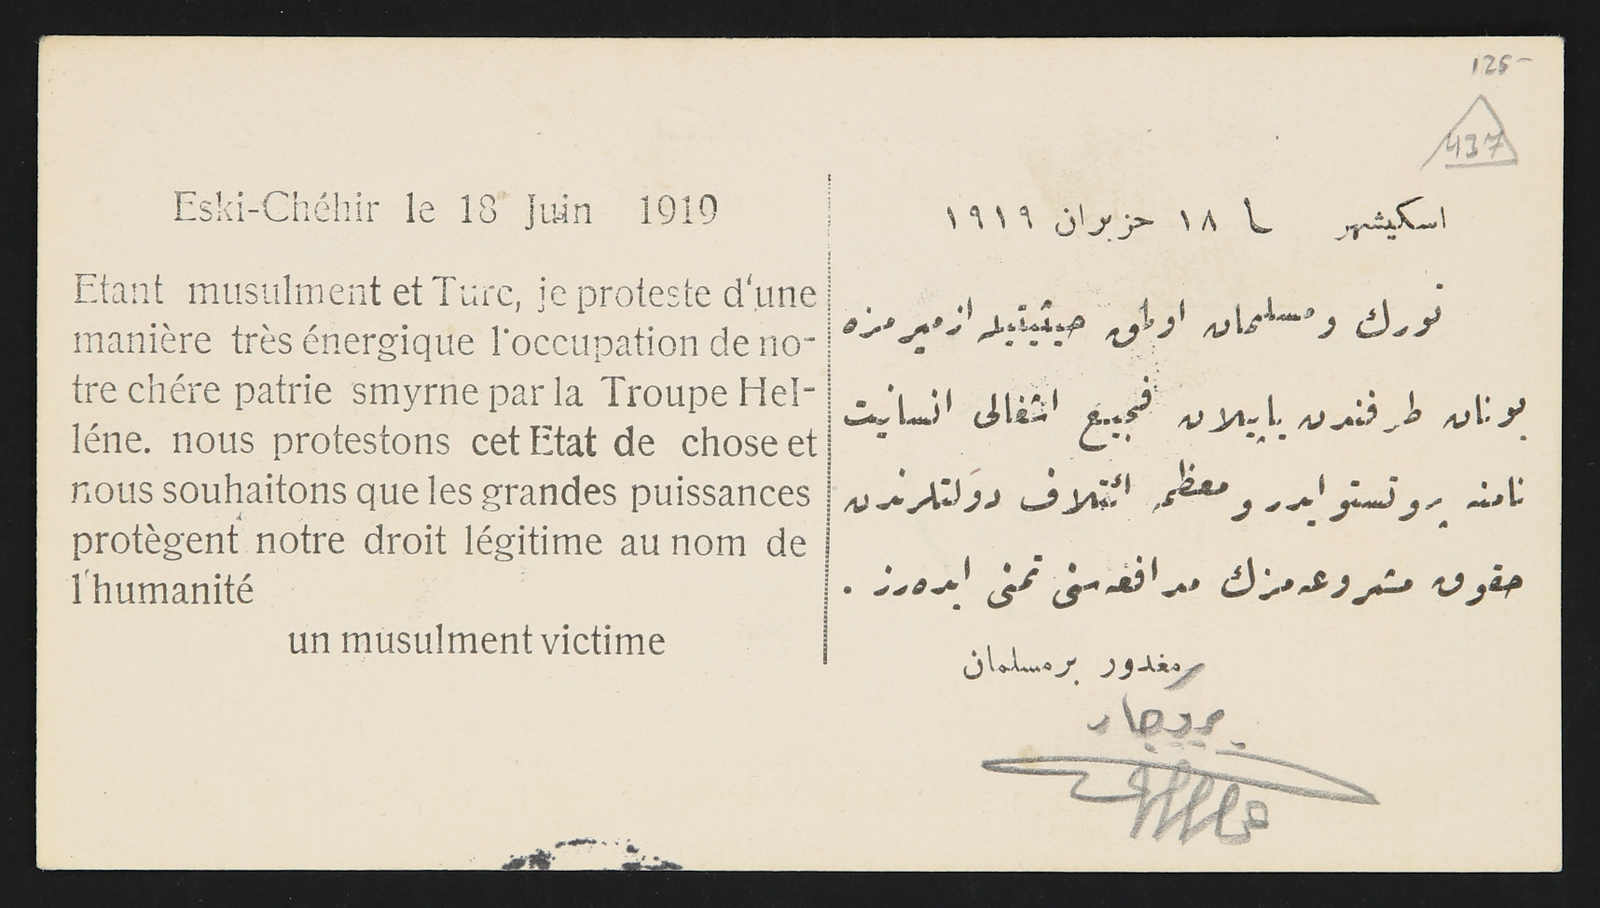 125-
437
Eski-Chéhir le 18 Juin 1919
Etant musulment et Turc, je proteste d'une
manière très énergique l'occupation de no-
tre chére patrie smyrne par la Troupe Hel-
léne. nous protestons cet Etat de chose et
nous souhaitons que les grandes puissances
protègent notre droit légitime au nom de
l'humanité
un musulment victime
اسكيشهر ١٨ حزيران ١٩١٩
تورك و مسلمان اولمق حيثيتيله ازميرمزه
يونان طرفندن ياپيلان فجيع اشغالى انسانيت
نامنه پروتستو ايدر و معظم ائتلاف دولتلرندن
حقوق مشروعه مزك مدافعه سنى تمنى ايده رز .
مغدور بر مسلمان